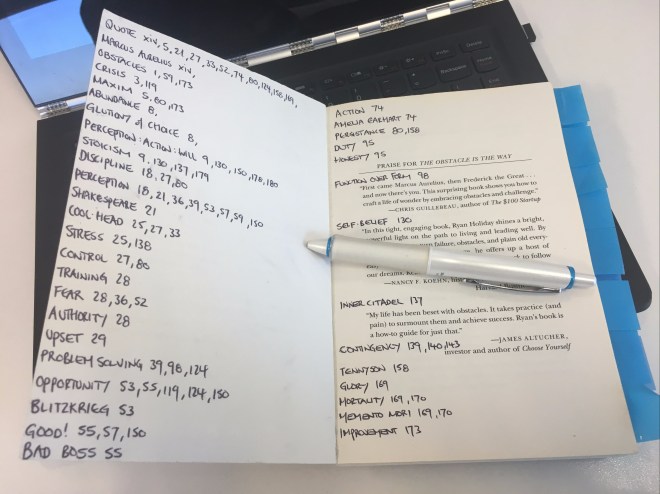 QUOTE xiv, 5, 21, 27, 33, 52, 74, 80, 124, 158, 169,
MARCUS AURELIUS xiv,
OBSTACLES 1, 59, 173
CRISIS 3, 119
MAXIM 5, 80, 173
ABUNDANCE 8,
GLUTTONY of CHOICE 8,
PERCEPTION: ACTION: WILL 9, 130, 150, 178, 180
STOICISM 9, 130, 137, 179
DISCIPLINE 18, 27, 80
PERCEPTION 18, 21, 36, 39, 53, 57, 59, 150
SHAKESPEARE 21
COOL-HEAD 25, 27, 33
STRESS 25, 138
CONTROL 27, 80
TRAINING 28
FEAR 28, 36, 52
AUTHORITY 28
UPSET 29
PROBLEM SOLVING 39, 98, 124
OPPORTUNITY 53, 55, 119, 124, 150
BLITZKRIEG 53
GOOD! 55, 57, 150
BAD BOSS 55
ACTION 74
AMELIA EARHART 74
PERSISTANCE 80, 158
DUTY 95
HONESTY 95
PRAISE FOR THE OBSTACLE IS THE WAY
FUNCTION OVER FORM 98
"First came Marcus Aurelius, then Frederick the Great . . .
and now there's you. This surprising book shows you how to
craft a life of wonder by embracing obstacles and challenge."
—CHRIS GUILLEBEAU, author of The $100 Startup
SELF-BELIEF 130
"In this tight, engaging book, Ryan Holiday shines a bright,
powerful light on the path to living and leading well. By
failure, obstacles, and plain old every-
he offers up a host of
to follow
our dreams.
—NANCY F. KOEHN,
INNER CITADEL 137
"My life has been beset with obstacles. It takes practice (and
pain) to surmount them and achieve success. Ryan's book is
a how-to guide for just that."
—JAMES ALTUCHER,
CONTINGENCY 139, 140, 143
investor and author of Choose Yourself
TENNYSON 158
GLORY 169
MORTALITY 169, 170
MEMENTO MORI 169, 170
IMPROVEMENT 173